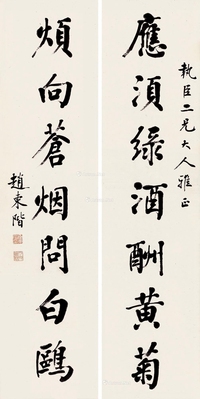 執臣二兄大人雅正
應須綠酒酬黃菊
煩向蒼烟問白鷗
趙東階